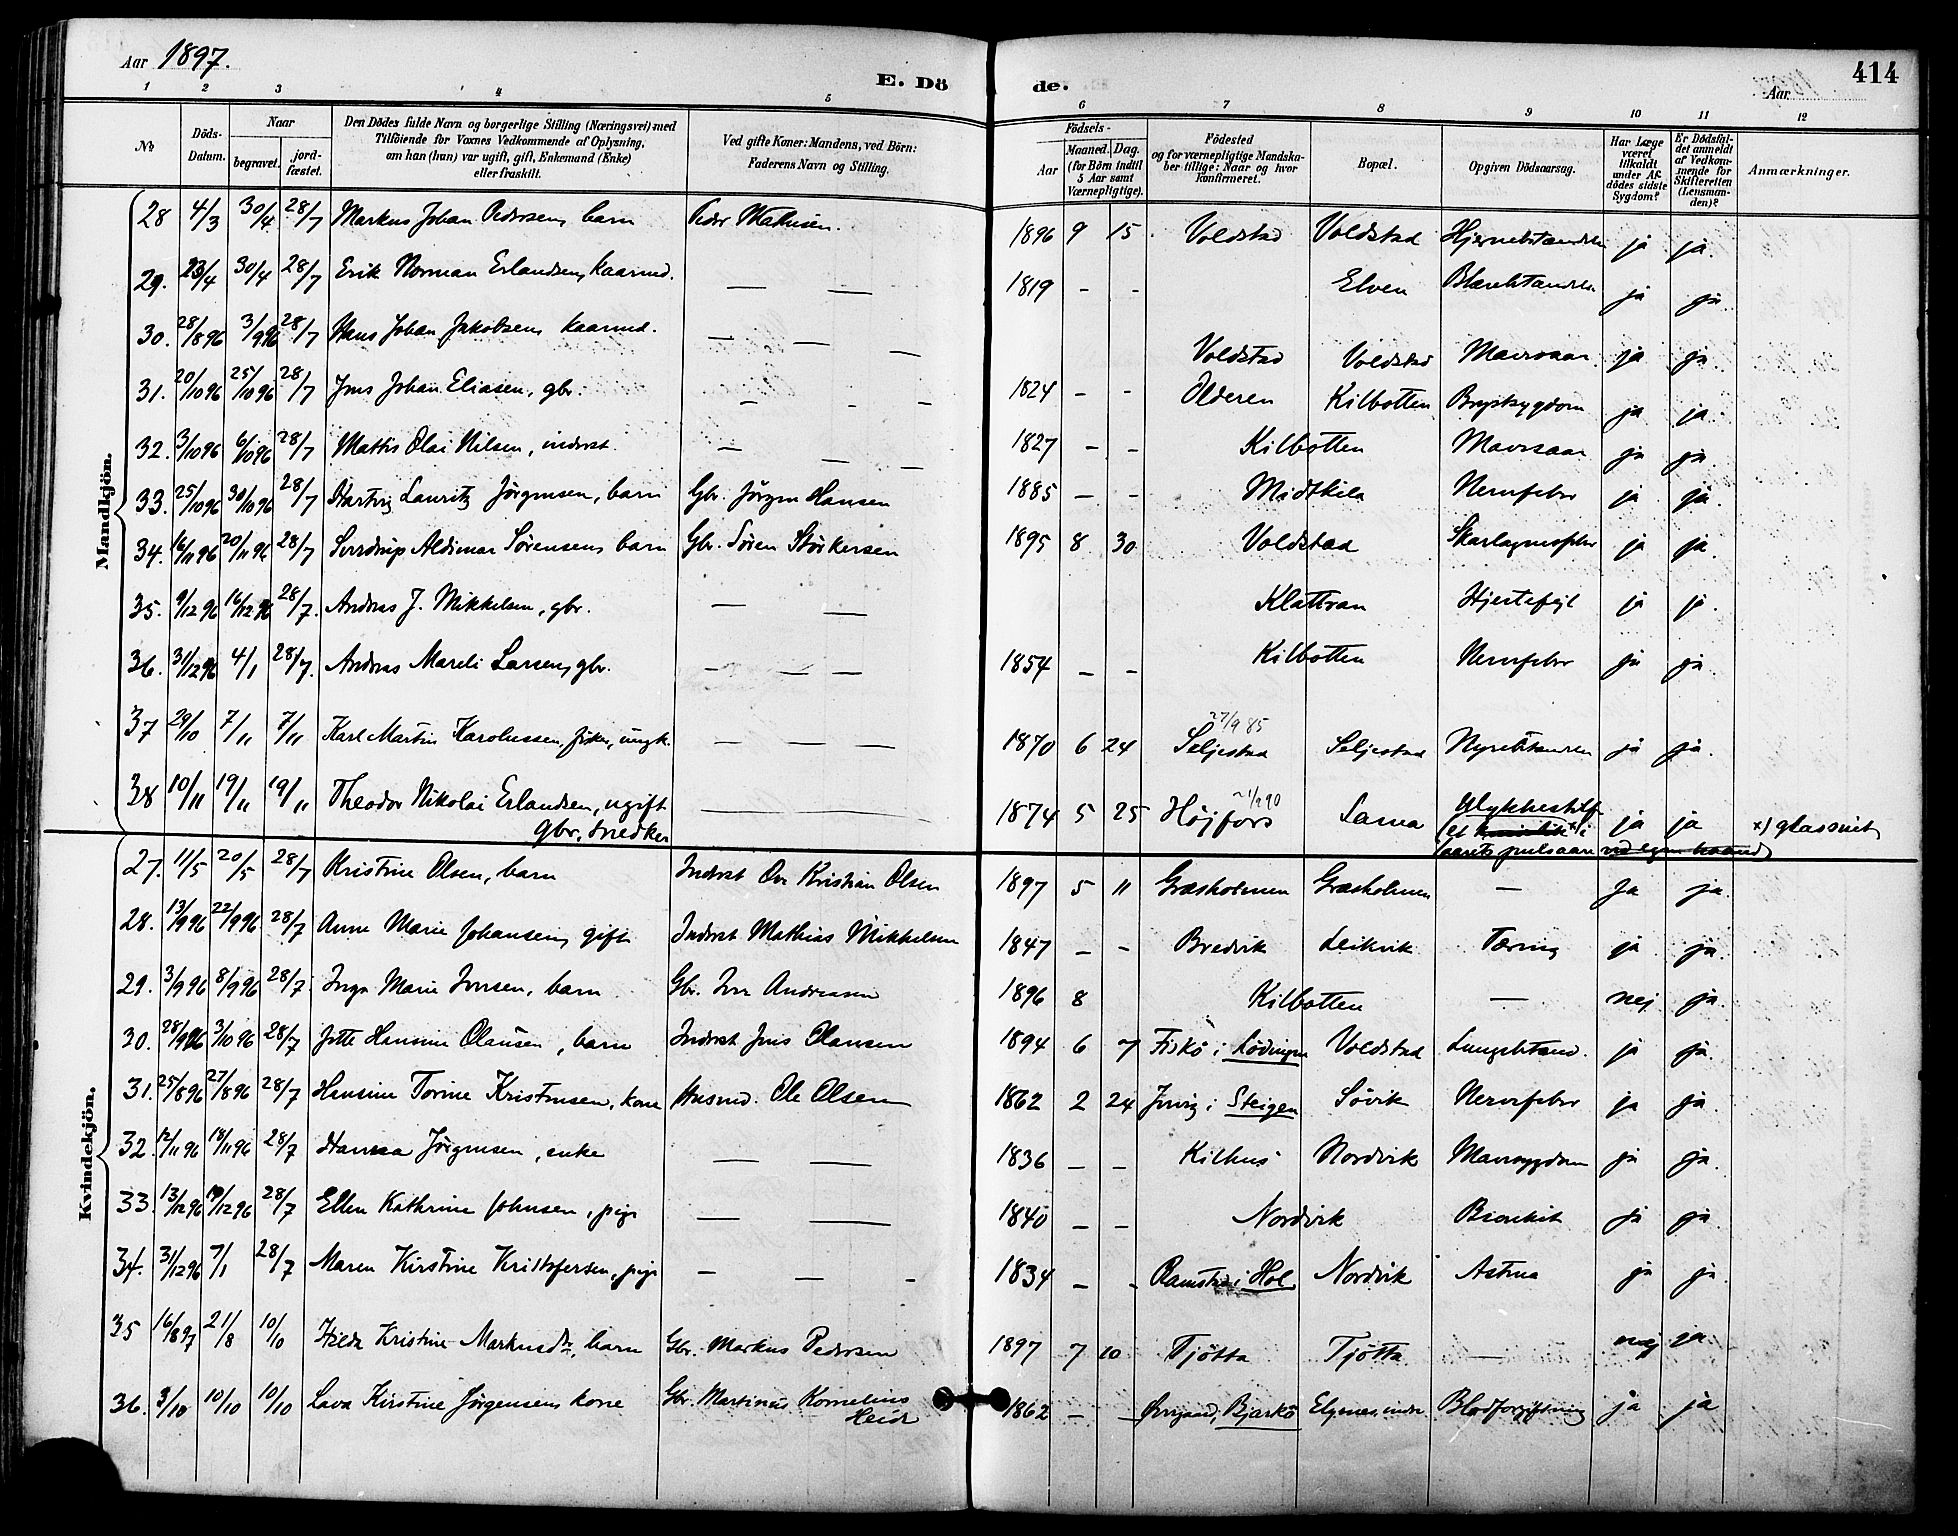 Aar 1897.
E. Döde.
Aar
414
1 2 3 4 5 6 7 8 9 10 11 12
№
Döds-Datum.
Naar
begravet.
jord-fæstet.
Den Dödes fulde Navn og borgerlige Stilling (Næringsvei) med Tilföiende for Voxnes Vedkommende af Oplysning, om han (hun) var ugift, gift, Enkemand (Enke) eller fraskilt.
Ved gifte Koner: Mandens, ved Börn: Faderens Navn og Stilling.
Födsels-
Aar
Maaned. Dag.
(for Börn indtil 5 Aar samt Værnepligtige).
Födested og for værnepligtige Mandskaber tillige: Naar og hvor konfirmeret.
Bopæl.
Opgiven Dödsaarsag.
Har Læge været tilkaldt under Afdödes sidste Sygdom?
Er Dödsfaldet anmeldt af Vedkommende for Skifteretten (Lensmanden)?
Anmærkninger.
Mandkjön.
28 4/3 30/4 28/7 Markus Johan Pedersen, barn Peder Mathisen. 1896 9 15 Voldstad Voldstad Hjernebetændelse ja ja.
29. 23/4 30/4 28/7 Erik Norman Erlandsen, kaarmd. — — 1819 - - Elven Blærebetændelse ja ja
30. 28/8 96 3/9 96 28/7 Hans Johan Jakobsen, kaarmd. — — — Voldstad Voldstad Mavesaar ja ja
31. 20/10 96 25/10 96 28/7 Jens Johan Eliasen, gbr. — — — 1824 - - Olderen Kilbotten Brystsygdom ja ja
32. 3/10 96 6/10 96 28/7 Mattis Olai Nilsen, inderst. — — — 1827 - - Kilbotten Mavesaar ja ja
33. 25/10 96 30/10 96 28/7 Hartvig Lauritz Jørgensen, barn Gbr. Jørgen Hansen 1885 - - Midtkila Nervefeber ja ja
34. 16/11 96 20/11 96 28/7 Sverdrup Aldimar Sørensen, barn Gbr. Sören Störkersen 1895 8 30 Voldstad Skarlagensfeber ja ja
35. 9/12 96 16/12 96 28/7. Andreas J. Mikkelsen, gbr. — — Klattran Hjertefejl ja ja.
36. 31/12 96 4/1 28/7. Andreas Mareli Larsen, gbr. — — — 1854 - - Kilbotten Nervefeber ja ja.
37 29/10 7/11 7/11 Karl Martin Karoliussen, fisker, ungk. — — — 1870 6 24 27/9 85 Seljestad Seljestad Nyrebetændelse ja ja.
38 10/11 19/11 19/11 Theodor Nikolai Erlandsen, ugift
gbr., snedker
1874 5 25 Højfors Sama Ulykkestilf.
ja ja x) glassnit
Kvindekjön.
27. 11/5 20/5 28/7 Kristine Olsen, barn Inderst Ove Kristian Olsen 1897 5 11 Græsholmen Græsholmen — Ja ja.
28. 13/9 96 22/9 96 28/7 Anne Marie Johansen, gift Inderst Mathias Mikkelsen 1847 - - Bredvik Leikvik Tæring ja ja.
29. 3/9 96 8/9 96 28/7 Inga Marie Iversen, barn Gbr. Iver Andreasen 1896 8 Kilbotten — nej ja.
30. 28/9 96 3/10 96 28/7 Jette Hansine Olausen, barn Inderst Jens Olausen 1894 6 7 Fiskö i Lödingen Voldstad Lungebetænd. ja ja.
31. 25/8 96 27/8 96 28/7 Hansine Torine Kristensen, kone Husmd. Ole Olsen 1862 2 24 i Steigen Sövik Nervefeber ja ja
32. 12/11 96 18/11 96 28/7 Hanna Jörgensen, enke — — 1836 - - Kilhus Nordvik Mavesygdom ja ja.
33. 13/12 96 19/12 96 28/7 Ellen Kathrine Johnsen, pige — — 1840 - - Nordvik Bronkit ja ja.
34. 31/12 96 7/1 28/7 Maren Kirstine Kristofersen, pige — — - 1834 - - Ramstad i Hol Nordvik Astma ja ja.
35 16/8 97 21/8 10/10 Hilda Kristine Markusdtr, barn Gbr. Markus Pedersen 1897 7 10 Tjötta Tjötta — nej ja
36. 3/10 10/10 10/10 Lava Kirstine Jørgensen, kone Gbr. Martinus Kornelius
Heide
1862 - - Bjarkö Elgenes indre Blodforgiftning ja ja